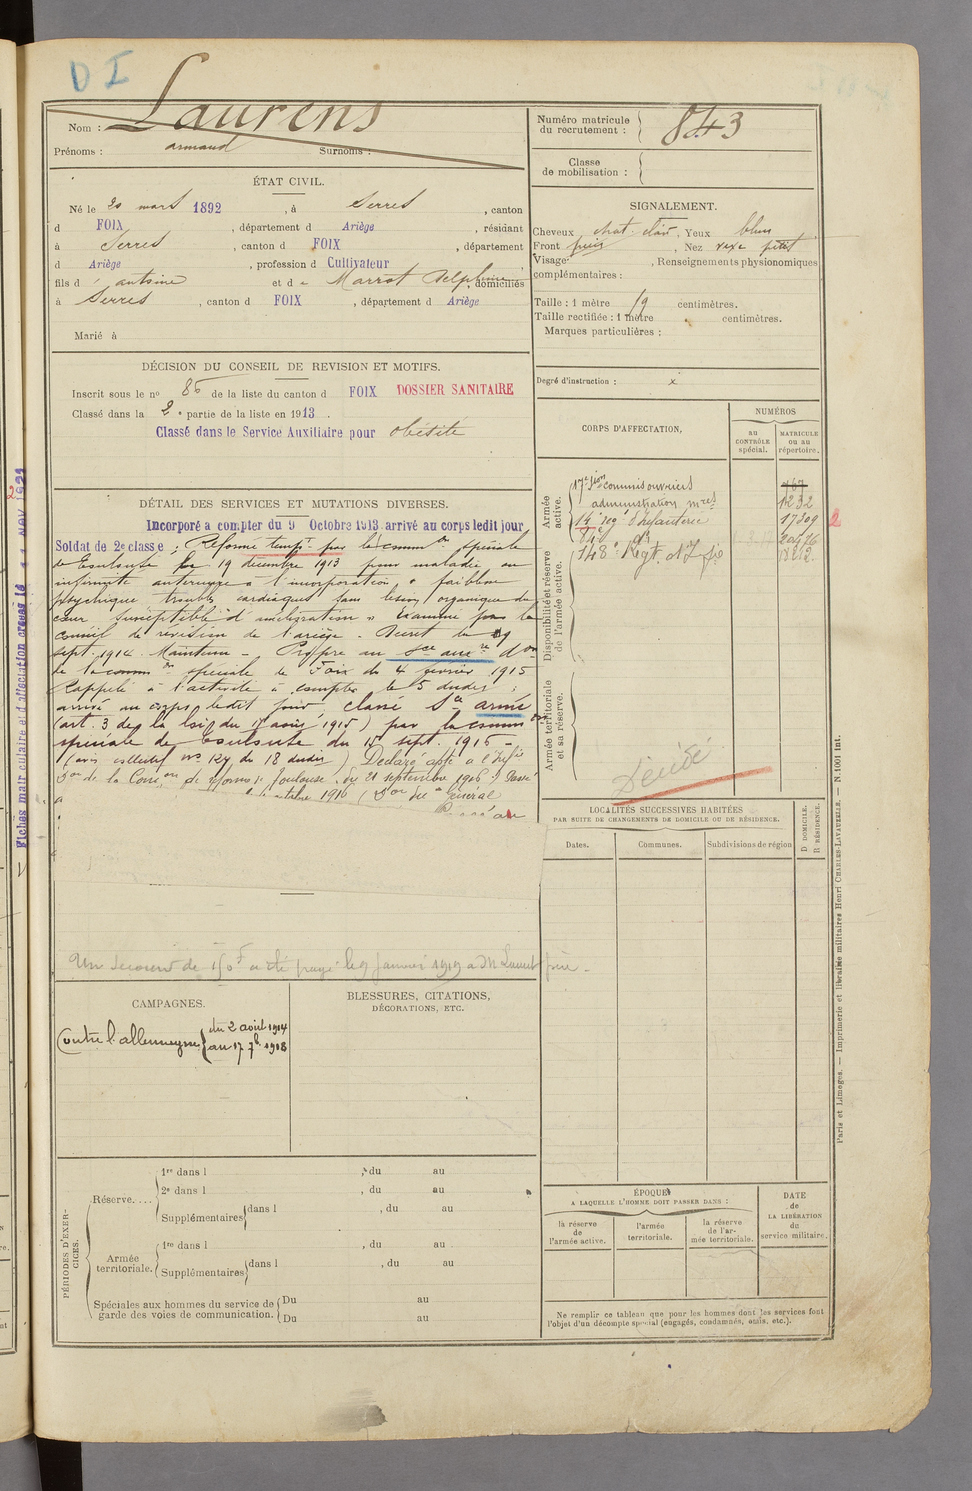 D I
Nom : Laurens
Prénoms : armand Surnoms :
Numéro matricule
du recrutement : 843
Classe
de mobilisation :
ÉTAT CIVIL.
Né le 20 mars 1892, à Serres, canton
d FOIX, département d Ariège, résidant
à Serres, canton d FOIX, département
d Ariège, profession d Cultivateur
fils d' antoine et de Marrot Delphine, domiciliés
à Serres, canton d FOIX, département d Ariège
Marié à
SIGNALEMENT.
Cheveux chat. clair, Yeux bleus
Front Nez petit
Visage , Renseignements physionomiques
complémentaires :
Taille : 1 mètre 59 centimètres.
Taille rectifiée : 1 mètre centimètres.
Marques particulières :
Degré d'instruction : x
DÉCISION DU CONSEIL DE REVISION ET MOTIFS.
Inscrit sous le nº 86 de la liste du canton d FOIX DOSSIER SANITAIRE
Classé dans la 2e partie de la liste en 1913.
Classé dans le Service Auxiliaire pour obésité
DÉTAIL DES SERVICES ET MUTATIONS DIVERSES.
Incorporé a compter du 9 Octobre 1913 arrivé au corps ledit jour
Soldat de 2e classe : Réformé tempre par la common spéciale
de Toulouse le 19 décembre 1913 pour maladie ou
infirmité antérieure à l'incorporation, faiblesse
psychique troubles cardiaques sans lésion organique du
cœur susceptible d'amélioration » Examiné par le
conseil de révision de l'ariège. Décret du 9
sept. 1914. Maintenu – Propre au sce auxre Don
de la common spéciale de Foix du 4 février 1915
Rappelé à l'activité à compter le 5 dudit ;
arrivé au corps ledit jour, classé sce armé
(art. 3 de la loi du 17 août 1915) par la comm on
spéciale de Toulouse du 15 sept. 1915 –
(avis collectif nº 127 du 18 dudit) Déclaré apte à l'Infie
Don de la Comon de réforme de Toulouse du 21 septembre 1916. Passé
octobre 1916 (Don du Général
Un secours de 150f a été payé le 9 janvier 1919 a M Laurens père.
CORPS D'AFFECTATION,
NUMÉROS
au
CONTRÔLE
spécial.
MATRICULE
ou au
répertoire.
Armée
active.
17e son commis ouvriers 767
administration mres 1232
14e reg. d'Infanterie 17309 2
148e Regt. d'Infie
Disponibilité et réserve
de l'armée active.
Armée territoriale
et sa réserve.
Décédé
LOCALITÉS SUCCESSIVES HABITÉES
PAR SUITE DE CHANGEMENTS DE DOMICILE OU DE RÉSIDENCE.
Dates.
Communes.
Subdivisions de région
D DOMICILE.
R RÉSIDENCE.
CAMPAGNES.
Contre l'allemagne du 2 août 1914
au 17 7bre 1918
BLESSURES, CITATIONS,
DÉCORATIONS, ETC.
PÉRIODES D'EXERCICES.
Réserve....
1re dans l , du au
2e dans l , du au
Supplémentaires dans l , du au
Armée
territoriale.
1re dans l , du au
Supplémentaires dans l , du au
Spéciales aux hommes du service de
garde des voies de communication.
Du au
Du au
ÉPOQUE
A LAQUELLE L'HOMME DOIT PASSER DANS :
la réserve
de
l'armée active.
l'armée
territoriale.
la réserve
de l'ar-
mée territoriale.
DATE
de
LA LIBÉRATION
du
service militaire.
Ne remplir ce tableau que pour les hommes dont les services font
l'objet d'un décompte spécial (engagés, condamnés, omis, etc.).
Paris et Limoges. — Imprimerie et librairie militaires Henri CHARLES-LAVAUZELLE. — N. 1001 Int.